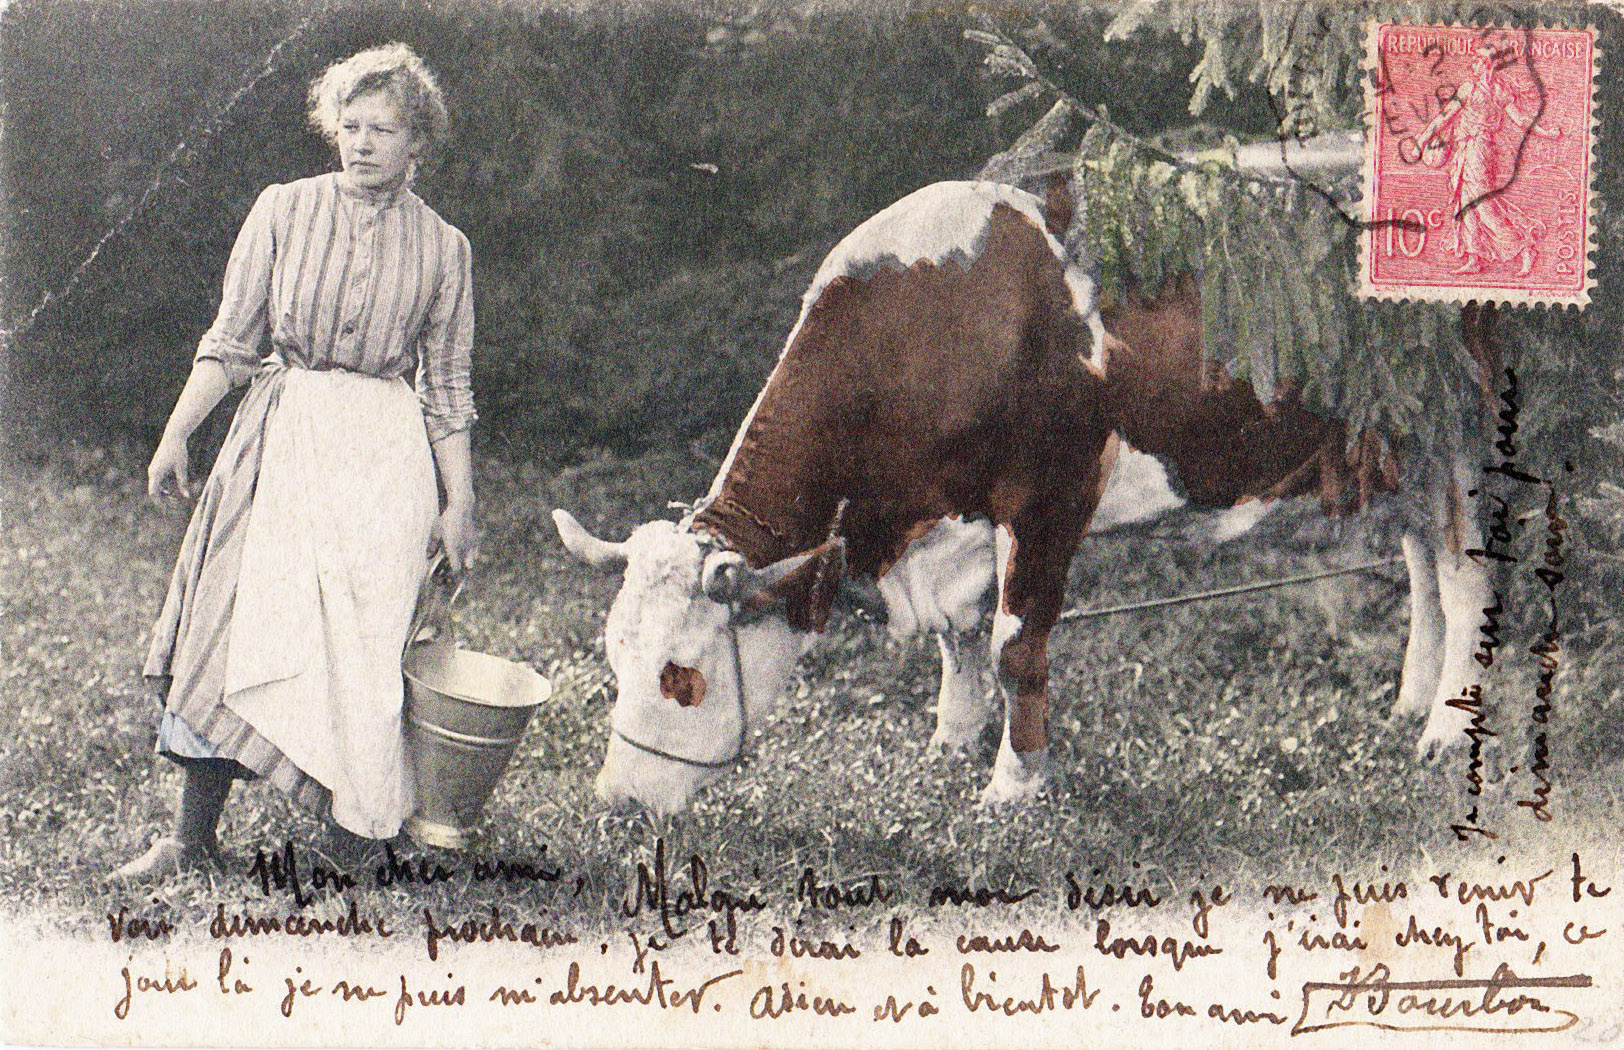 RÉPUBLIQUE FRANÇAISE
2
FEVR
04
10c
POSTES
Mon cher ami, Malgré tout mon désir je ne puis venir te
voir dimanche prochain, je te dirai la cause lorsque j'irai chez toi, ce
jour là je ne puis m'absenter. Adieu et à bientôt. Ton ami Bourbon
Je compte sur toi pour
dimanche soir.